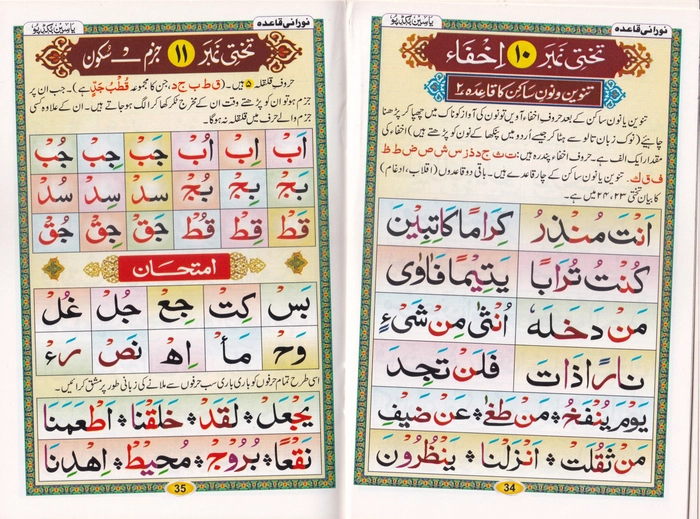 نورانی قاعدہ
یاسین بکڈپو
تختی نمبر ۱۰ اِخفَاء
تنوین و نون ساکن کا قاعدہ ۲
تنوین یا نون ساکن کے بعد حروف اخفاء آویں تو نون کی آواز کو ناک میں چھپا کر پڑھنا
چاہیئے (نوک زبان تالو سے ہٹا کر جیسے اُردو میں پنکھا کے نون کو پڑھتے ہیں) اخفاء کی
مقدار ایک الف ہے۔ حروف اخفاء پندرہ ہیں: ت ث ج د ذ ز س ش ص ض ط ظ
ف ق ك۔ تنوین یا نون ساکن کے چار قاعدے ہیں۔ باقی دو قاعدوں (اقلاب، ادغام)
کا بیان تختی ۲۳، ۲۴ میں ہے۔
اَنْتَ مُنْذِرُ كِرَامًا كَاتِبِيْنَ
كُنْتُ تُرَابًا يَتِيْمًا فَاٰوٰى
مَنْ دَخَلَهٗ اُنْثٰى مِنْ شَىْءٍ
نَارًا ذَاتَ فَلَنْ تَجِدَ
يَوْمَ يُنْفَخُ مَنْ طَغٰى عَنْ ضَيْفِ
مَنْ ثَقُلَتْ اَنْزَلْنَا يَنْظُرُوْنَ
34
نورانی قاعدہ
یاسین بکڈپو
تختی نمبر ۱۱ جزم و سکون
حروف قلقلہ ۵ ہیں۔ (ق ط ب ج د، جن کا مجموعہ قُطْبُ جَدٍّ ہے)۔ جب ان پر
جزم ہو تو ان کو پڑھتے وقت ان کے مخرج ٹکر کھا کر الگ ہو جاتے ہیں۔ ان کے علاوہ کسی
جزم والے حرف میں قلقلہ نہ ہوگا۔
اَبْ اِبْ اُبْ جَبْ جِبْ جُبْ
بَجْ بِجْ بُجْ سَدْ سِدْ سُدْ
قَطْ قِطْ قُطْ جَقْ جِقْ جُقْ
امتحان
بَسْ كِتْ جِعْ حُلْ غُلْ
وَحْ مَأْ اِهْ نَصْ رَءْ
اسی طرح تمام حرفوں کو باری باری سب حرفوں سے ملانے کی زبانی طور پر مشق کرائیں۔
يَجْعَلْ لَقَدْ خَلَقْنَا اَطْعَمَنَا
نَقْعًا بُرُوْجْ مُحِيْطْ اِهْدِنَا
35